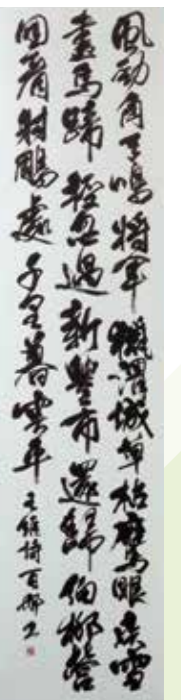 風勁角弓鳴將軍獵渭城草枯鷹眼疾雪
盡馬蹄輕忽過新豐市還歸細柳營
回看射鵰處千里暮雲平王維詩